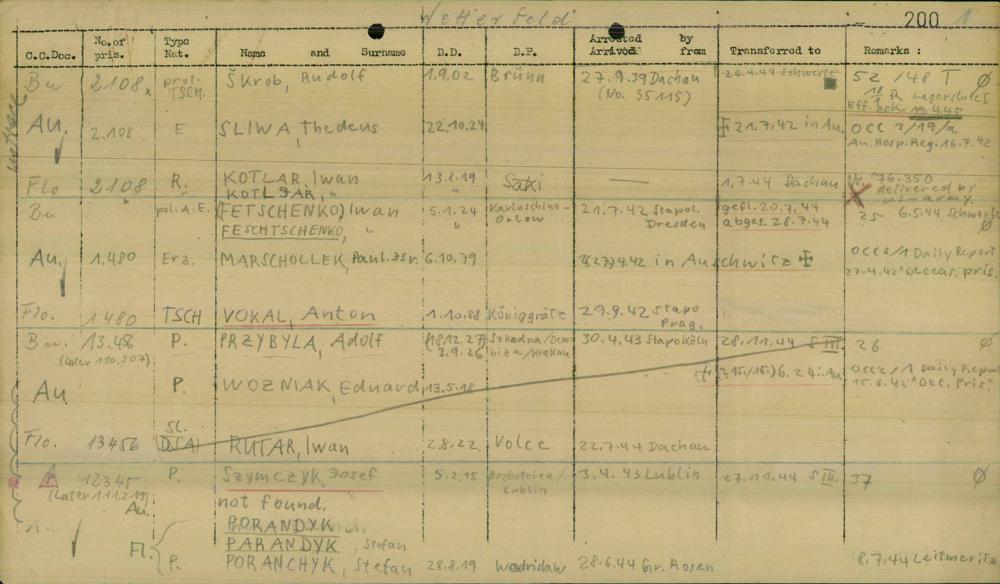 Wetterfeld
200 1
C.C.Doc. No. of pris. Type Nat. Name and Surname B.D. B.P. Arrested Arrived by from Transferred to Remarks :
Bu 2108x prot. TSCH. ŠKrob, Rudolf 1.9.02 Brünn 27.9.39 Dachau (No. 35115) 20.4.44 Schwerte 52 /48 T Ø
Eff. 19.4.45
Au. 2.108 E. SLIWA, Thedeus 22.10.24 21.7.42 in Au. OCC 2/19/a
Au. Hosp. Reg. 16.7.42
Flo 2108 R. KOTLAR, Iwan 13.8.19 Saki — 1.7.44 Dachau Nr. 76.350
KOTLJAR, " " delivered by us-army.
Bu " pol. A.E. (FETSCHENKO) Iwan 5.1.24 Orlow 21.7.42 Stapol. Dresden gefl. 20.7.44 25 6.5.44 Ø
FESCHTSCHENKO, " abges. 28.7.44
Au. 1.480 Erz. MARSCHOLLEK, Paul. Isr. 6.10.79 in Auschwitz OCC2/1 Daily Report
27.4.42 "Deceas. pris.
Flo. 1480 TSCH VOKAL, Anton 1.10.88 Königgrätz 29.9.42 Stapo Prag.
Bu. 13.456 P. PRZYBYLA, Adolf (18.12.27) 30.4.43 Stapo Köln 28.11.44 S III. 26 Ø
(later 110.307) 3.9.26
Au P. WOZNIAK, Eduard 13.5.18 6.2 i. Au. OCC2/1 Daily Report
15.6.42 "Dec. Pris."
Flo. 13456 Sl. RUTAR, Iwan 2.8.22 Volce 22.7.44 Dachau
12345 P. Szymczyk, Josef 5.2.15 Bochotnica/ Lublin 3.4.43 Lublin 27.11.44 S III. 37 Ø
(later 111.219)
Au. not found.
PORANDYK
Fl. PARANDYK, Stefan
P. PORANCHYK, Stefan 28.8.19 Wodzislaw 28.6.44 Gr. Rosen 8.7.44 Leitmeritz